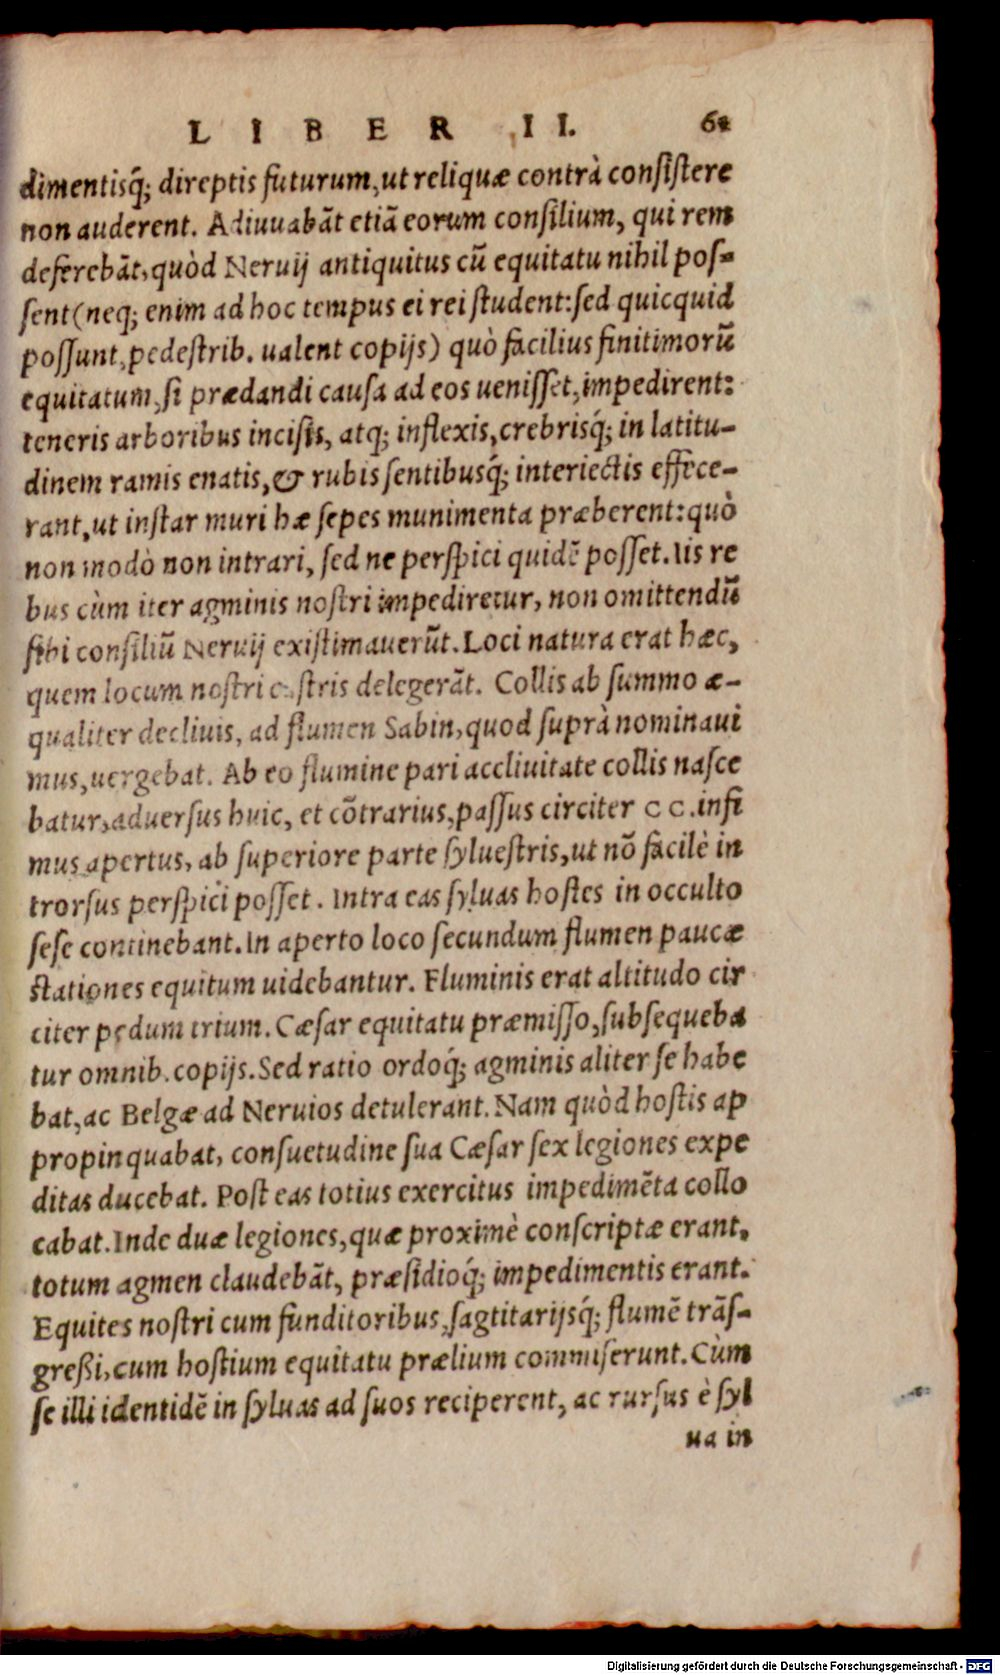 LIBER II. 61
dimentisq́; direptis futurum, ut reliquæ contrà consistere
non auderent. Adiuuabāt etiā eorum consilium, qui rem
deferebāt, quòd Neruij antiquitus cū equitatu nihil pos-
sent (neq; enim ad hoc tempus ei rei student: sed quicquid
possunt, pedestrib. ualent copijs) quò facilius finitimorū
equitatum, si prædandi causa ad eos uenisset, impedirent:
teneris arboribus incisis, atq; inflexis, crebrisq́; in latitu-
dinem ramis enatis, & rubis sentibusq́; interiectis effece-
rant, ut instar muri hæ sepes munimenta præberent: quò
non modò non intrari, sed ne perspici quidē posset. Iis re
bus cùm iter agminis nostri impediretur, non omittendū
sibi consiliū Neruij existimauerūt. Loci natura erat hæc,
quem locum nostri castris delegerāt. Collis ab summo æ-
qualiter decliuis, ad flumen Sabin, quod suprà nominaui
mus, uergebat. Ab eo flumine pari accliuitate collis nasce
batur, aduersus huic, et cōtrarius, passus circiter CC. infi
mus apertus, ab superiore parte syluestris, ut nō facilè in
trorsus perspici posset. Intra eas syluas hostes in occulto
sese continebant. In aperto loco secundum flumen paucæ
stationes equitum uidebantur. Fluminis erat altitudo cir
citer pedum trium. Cæsar equitatu præmisso, subsequeba
tur omnib. copijs. Sed ratio ordoq́; agminis aliter se habe
bat, ac Belgæ ad Neruios detulerant. Nam quòd hostis ap
propinquabat, consuetudine sua Cæsar sex legiones expe
ditas ducebat. Post eas totius exercitus impedimēta collo
cabat. Inde duæ legiones, quæ proximè conscriptæ erant,
totum agmen claudebāt, præsidioq́; impedimentis erant.
Equites nostri cum funditoribus, sagtitarijsq́; flumē trās-
greßi, cum hostium equitatu prælium commiserunt. Cùm
se illi identidē in syluas ad suos reciperent, ac rursus è syl
ua in
Digitalisierung gefördert durch die Deutsche Forschungsgemeinschaft - DFG